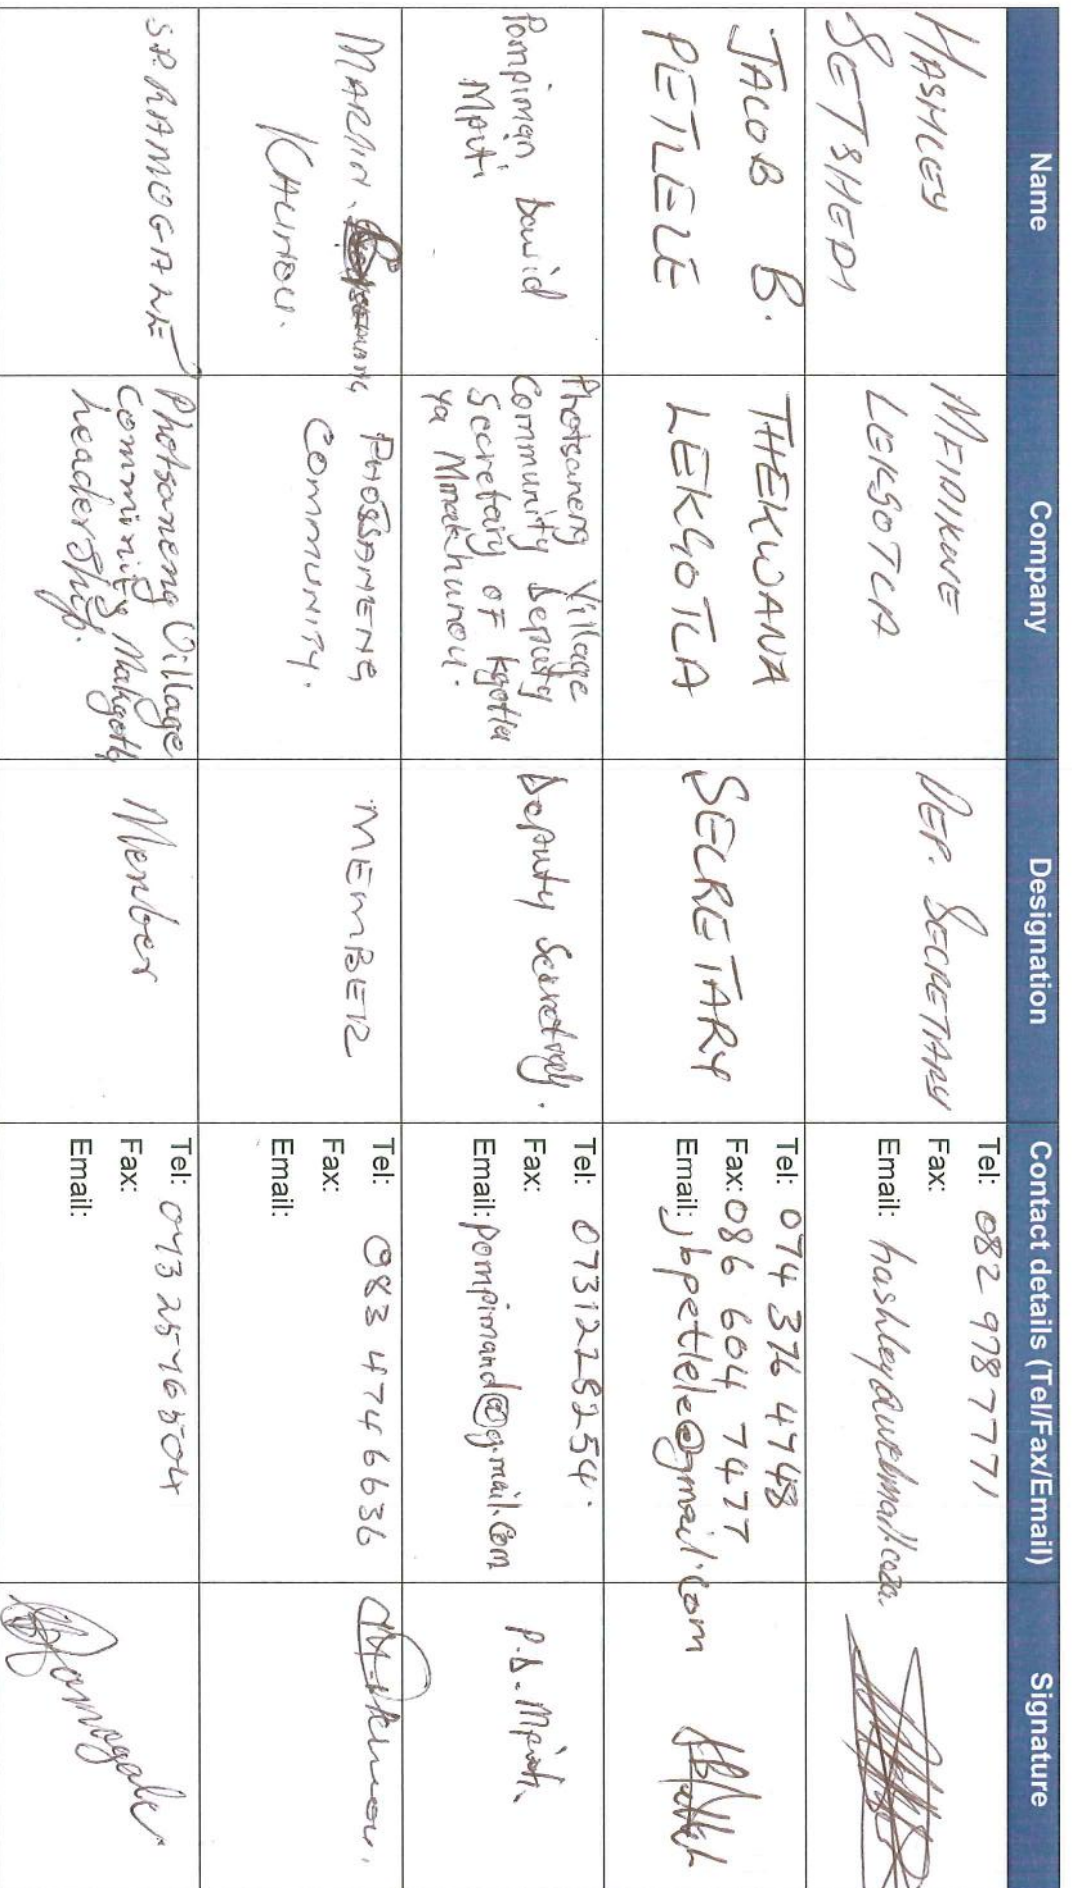 Name Company Designation Contact details (Tel/Fax/Email) Signature
HASHLEY
SETSHEDI
MFIDIKWE
LEKGOTLA
DEP. SECRETARY
Tel: 082 978 7771
Fax:
Email: hashley@webmail.co.za
JACOB B.
PETLELE
THEKWANA
LEKGOTLA
SECRETARY
Tel: 074 376 4748
Fax: 086 604 7477
Email: jbpetlele@gmail.com
Pompiman David
Mputi
Photsaneng Village
Community Deputy
Secretary OF kgotla
ya Mmakhunou.
Deputy Secretary.
Tel: 0731228254.
Fax:
Email: pompimand@g.mail.com
P.D. Mputi
MARTIN
KHUNOU.
PHOTSANENG
COMMUNITY.
MEMBER
Tel: 083 474 6636
Fax:
Email:
S.P. RAMOGANE
Photsaneng Village
Community Makgotla
headership.
Member
Tel: 073 25
Fax:
Email: